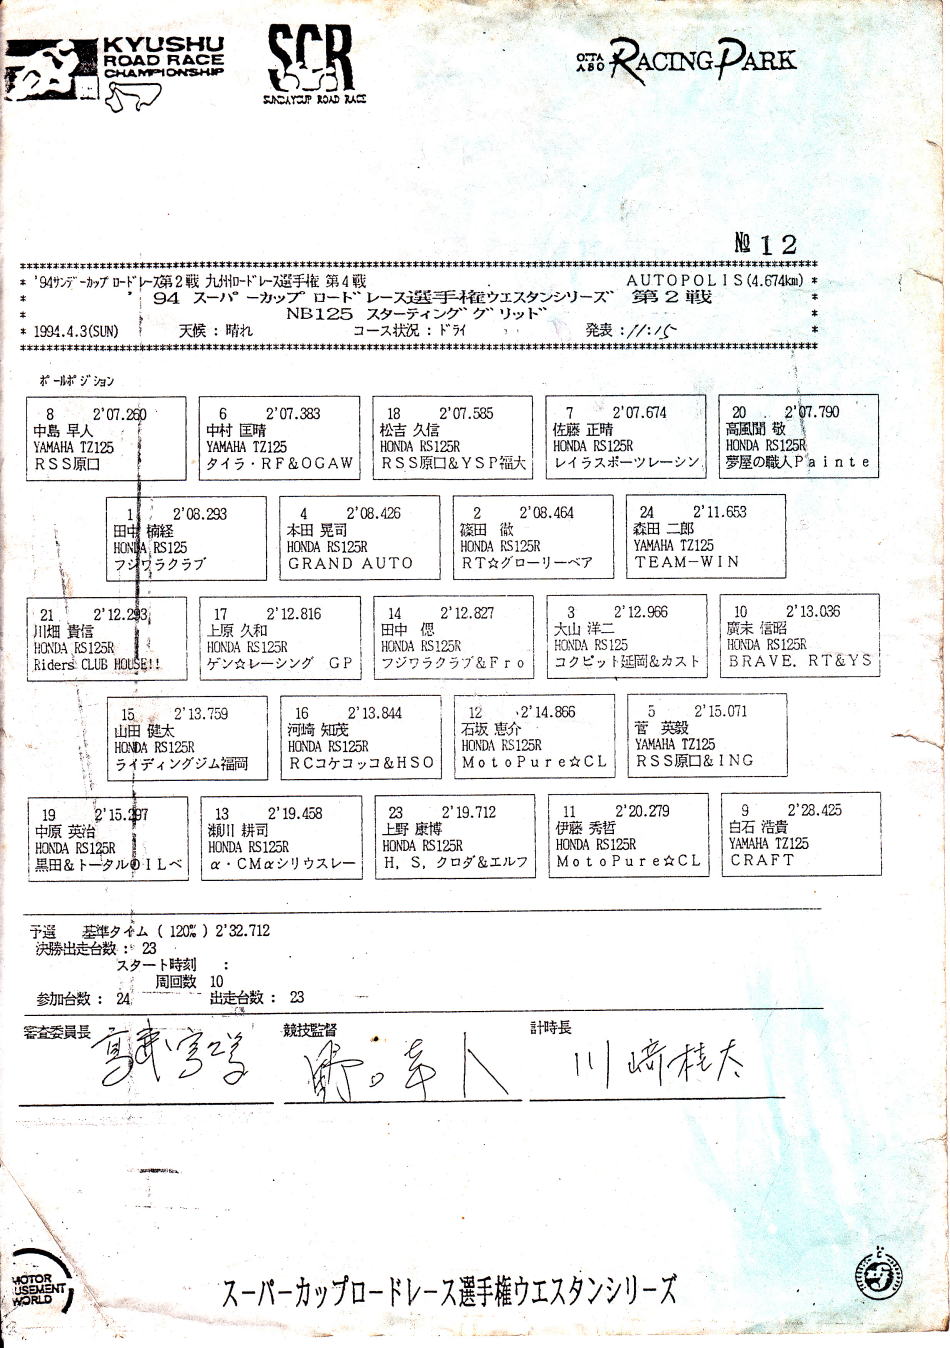 KYUSHU
ROAD RACE
CHAMPIONSHIP
SCR
SUNDAYCUP ROAD RACE
OITA
ASO
RACING PARK
№ 12
********************************************************************************
* '94サンデーカップ ロードレース第2戦 九州ロードレース選手権 第4戦 AUTOPOLIS(4.674km) *
* '94 スーパーカップ ロードレース選手権ウエスタンシリーズ 第2戦 *
* NB125 スターティンググリッド *
* 1994.4.3(SUN) 天候：晴れ コース状況：ドライ 発表：11:15 *
********************************************************************************
ポールポジション
8 2'07.260 6 2'07.383 18 2'07.585 7 2'07.674 20 2'07.790
中島 早人 中村 匡晴 松吉 久信 佐藤 正晴 高風間 敬
YAMAHA TZ125 YAMAHA TZ125 HONDA RS125R HONDA RS125R HONDA RS125R
ＲＳＳ原口 タイラ・ＲＦ＆ＯＧＡＷ ＲＳＳ原口＆ＹＳＰ福大 レイラスポーツレーシン 夢屋の職人Ｐａｉｎｔｅ
1 2'08.293 4 2'08.426 2 2'08.464 24 2'11.653
田中 楠経 本田 晃司 篠田 徹 森田 二郎
HONDA RS125 HONDA RS125R HONDA RS125R YAMAHA TZ125
フジワラクラブ GRAND AUTO ＲＴ☆グローリーベア TEAM－WIN
21 2'12.293 17 2'12.816 14 2'12.827 3 2'12.966 10 2'13.036
川畑 貴信 上原 久和 田中 偲 大山 洋二 廣末 信昭
HONDA RS125R HONDA RS125R HONDA RS125R HONDA RS125 HONDA RS125R
Riders CLUB HOUSE!! ゲン☆レーシング ＧＰ フジワラクラブ＆Ｆｒｏ コクピット延岡＆カスト ＢＲＡＶＥ．ＲＴ＆ＹＳ
15 2'13.759 16 2'13.844 12 2'14.866 5 2'15.071
山田 健太 河崎 知茂 石坂 恵介 菅 英毅
HONDA RS125R HONDA RS125R HONDA RS125R YAMAHA TZ125
ライディングジム福岡 ＲＣコケコッコ＆ＨＳＯ ＭｏｔｏＰｕｒｅ☆ＣＬ ＲＳＳ原口＆ＩＮＧ
19 2'15.297 13 2'19.458 23 2'19.712 11 2'20.279 9 2'28.425
中原 英治 瀬川 耕司 上野 康博 伊藤 秀哲 白石 浩貴
HONDA RS125R HONDA RS125R HONDA RS125R HONDA RS125R YAMAHA TZ125
黒田＆トータルOILベ α・ＣＭαシリウスレー Ｈ．Ｓ．クロダ＆エルフ ＭｏｔｏＰｕｒｅ☆ＣＬ ＣＲＡＦＴ
予選 基準タイム ( 120% ) 2'32.712
決勝出走台数： 23
スタート時刻 ：
周回数 10
参加台数： 24 出走台数： 23
審査委員長 競技監督 計時長
川崎桂太
MOTOR
WORLD
スーパーカップロードレース選手権ウエスタンシリーズ